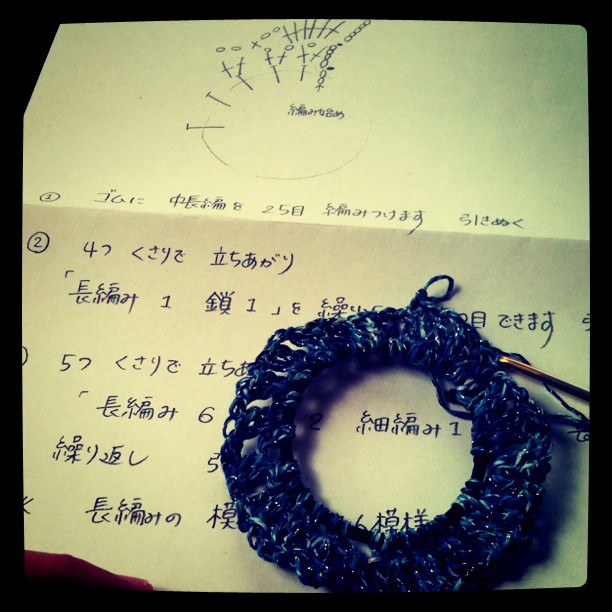 編み始め
① ゴムに 中長編を 25目 編みつけます 引きぬく
② 4つ くさりで 立ちあがり
「長編み 1 鎖1」を 繰り 目 できます
5つ くさりで 立ちあ
「長編み 6 2 細編み1
繰り返し
長編みの 模 6模様